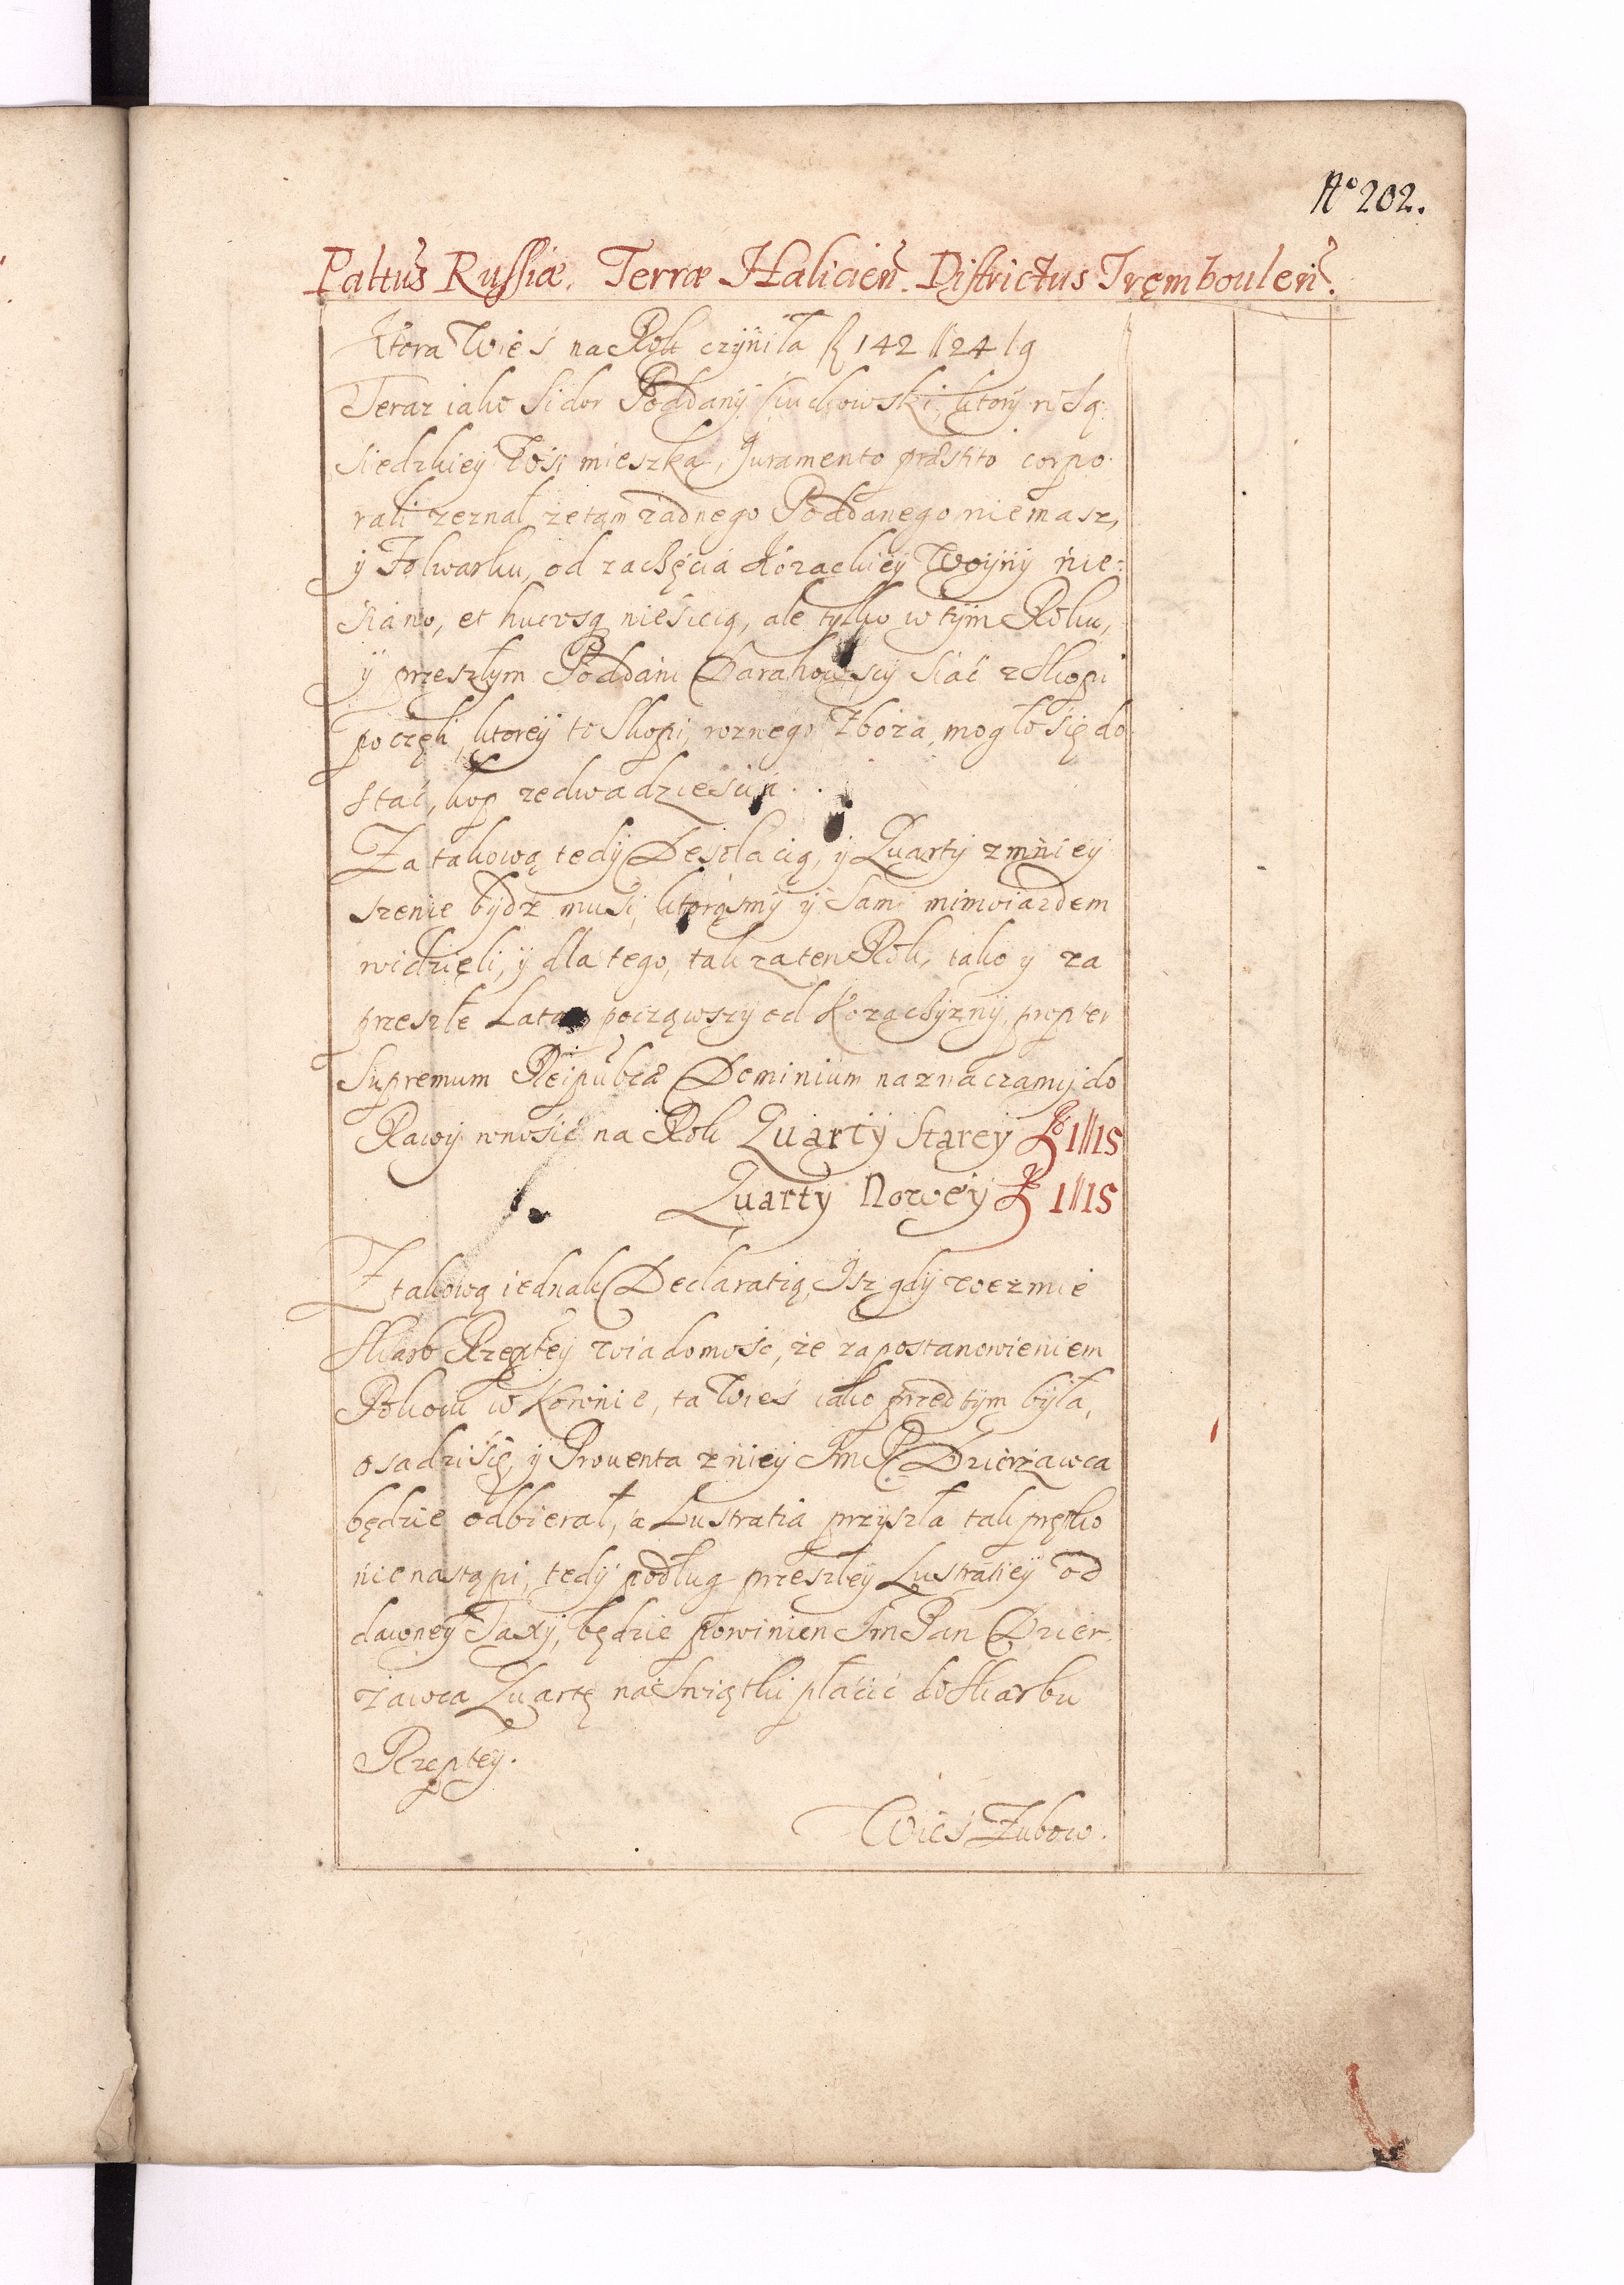 No 202.
Paltus Russiæ. Terræ Halicien. Districtus Tremboulen.
Ktora Wieś na Rok czyniła f 142 // 24 / 9
Teraz iako Sidor Poddany który w Są
siedzkiey Wsi mieszka, Juramento præstito corpo
rali zeznał że tam żadnego Poddanego niemasz,
y Folwarku, od zaczęcia Kozackiey Woyny nie:
siano, et hucusq nieśieią, ale tylko w tym Roku,
y przeszłym Poddani Darahowscy Siać z Skopi
poczęli, ktorey to Skopi, roznego Zboża, mogło się do
stać, kop ze dwadzieścia.
Za takową tedy Desolacią, y Quarty zmniey
szenie bydź musi, ktorąsmy y Sami mimoiazdem
widzieli, y dla tego, tak za ten Rok, iako y za
przeszłe Lata począwszy od Kozaczyzny, propter
Supremum Reipubcæ Dominium naznaczamy do
Rawy wnosić na Rok Quarty Starey f 1//15
Quarty Nowey f 1//15
Z takową iednak Declaratią, Isz gdy weźmie
Skarb Rzeptey wiadomość, że za postanowieniem
Pokoiu w Koronie, ta Wieś iako przed tym była,
osadzi się, y Prouenta z niey Im P Dzierżawca
będzie odbierał, a Lustratia przyszła tak prętko
nie nastąpi, tedy podług przeszłey Lustratiey od
dawney Taxy, będzie powinien Im Pan Dzier
żawca Quartę na Swiątki płacić do Skarbu
Rzeptey.
Wieś Zubow.